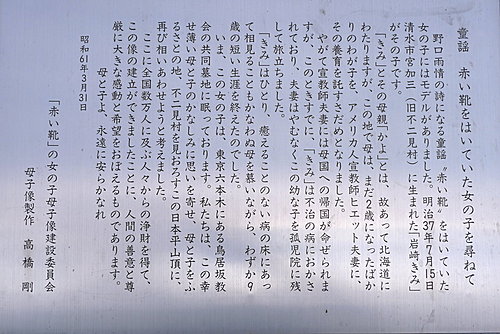 童謡　赤い靴をはいていた女の子を尋ねて
野口雨情の詩になる童謡〝赤い靴〟をはいていた
女の子にはモデルがありました。明治37年7月15日
清水市宮加三（旧不二見村）に生まれた「岩崎きみ」
がその子です。
「きみ」とその母親「かよ」とは、故あって北海道に
わたりますが、この地で母は、まだ2歳になったばか
りのわが子を、アメリカ人宣教師ヒエット夫妻に、
その養育を託すさだめとなりました。
やがて宣教師夫妻には母国への帰国が命ぜられま
すが、このときすでに、「きみ」は不治の病におかさ
れており、夫妻はやむなくこの幼な子を孤児院に残
して旅立ちました。
「きみ」はひとり、癒えることのない病の床にあっ
て相見ることもかなわぬ母を慕いながら、わずか9
歳の短い生涯を終えたのでした。
いま、この女の子は、東京六本木にある鳥居坂教
会の共同墓地に眠っております。私たちは、この幸
せ薄い母と子のかなしみに思いを寄せ、母と子をふ
るさとの地、不二見村を見おろすこの日本平山頂に、
再び相いあわせようと考えました。
ここに全国数万人に及ぶ人々からの浄財を得て、
この像の建立ができましたことに、人間の善意と尊
厳に大きな感動と希望をおぼえるものであります。
母と子よ、永遠に安らかなれ
昭和61年3月31日
「赤い靴」の女の子母子像建設委員会
母子像製作　高橋　剛